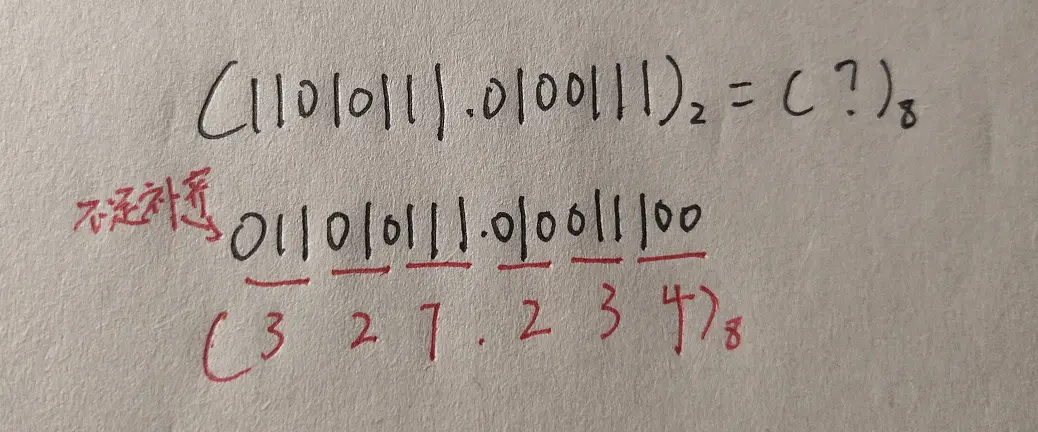 (11010111.0100111)₂ = (?)₈
不足补零 011010111.010011100
(3 2 7 . 2 3 4)₈